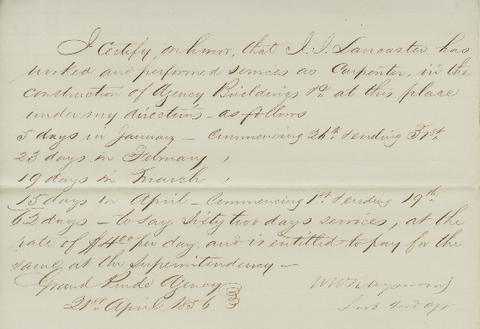 I Certify, on honor, that J. J. Lancaster has
worked and performed services as Carpenter, in the
construction of Agency Buildings &c. at this place
under my direction - as follows
5 days in January - Commencing 26th & ending 31st.
23 days in February,
19 days in March,
15 days in April - Commencing 1st & ending 19th
62 days - to say Sixty two days services, at the
rate of $4.00 per day, and is entitled to pay for the
same, at the Superintendency -
Grand Ronde Agency
21st April 1856
Ind Agt